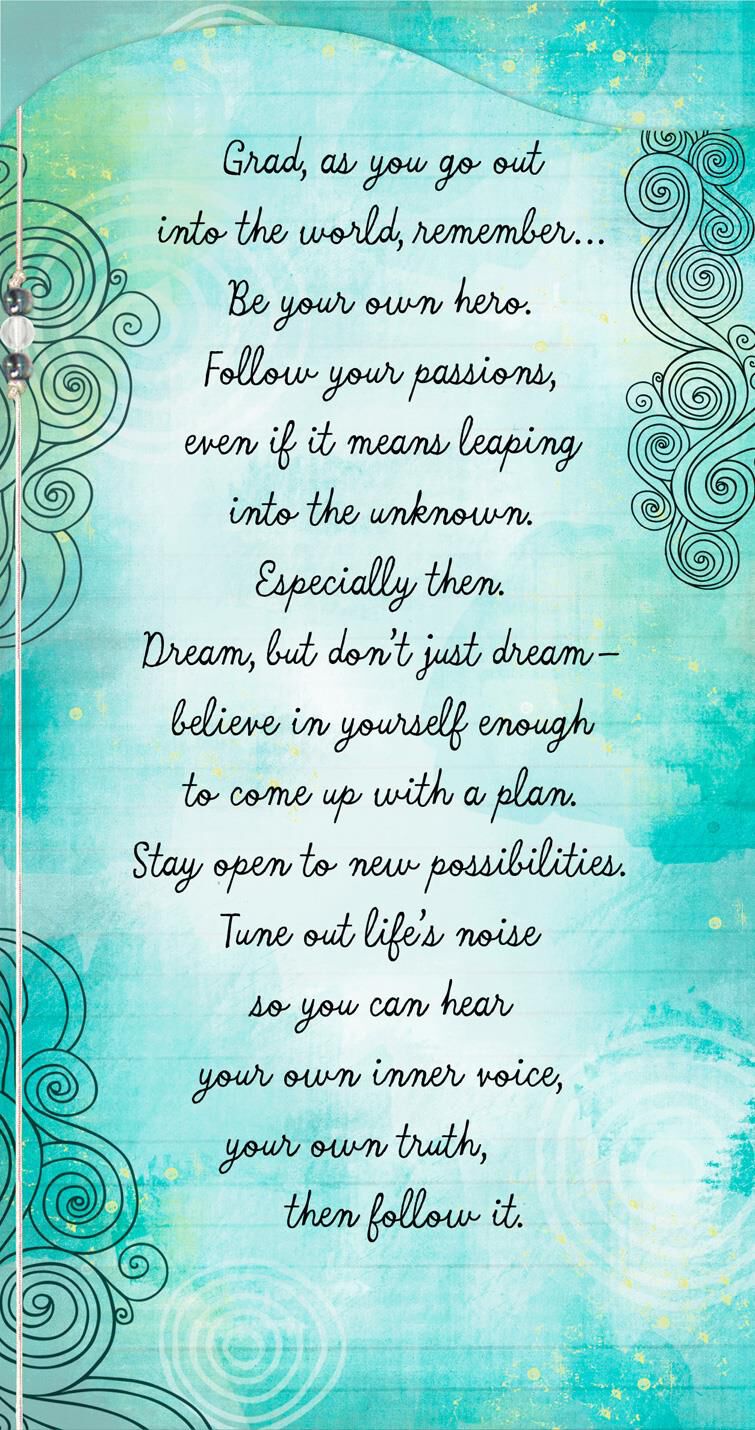 Grad, as you go out
into the world, remember...
Be your own hero.
Follow your passions,
even if it means leaping
into the unknown.
Especially then.
Dream, but don't just dream—
believe in yourself enough
to come up with a plan.
Stay open to new possibilities.
Tune out life's noise
so you can hear
your own inner voice,
your own truth,
then follow it.